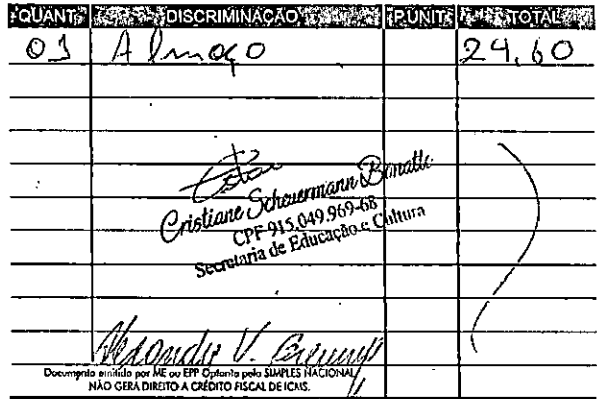 QUANT. DISCRIMINAÇÃO P.UNIT. TOTAL
01 Almoço 24,60
Cristiane Scheuermann Bonatto
CPF 915.049.969-68
Secretaria de Educação e Cultura
V.
Documento emitido por ME ou EPP Optante pelo SIMPLES NACIONAL
NÃO GERA DIREITO A CRÉDITO FISCAL DE ICMS.